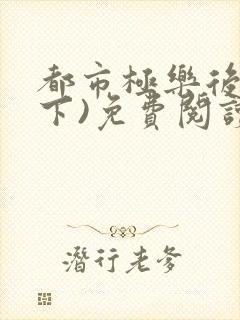 都市極樂後
下)免費閱讀
潛行老爹